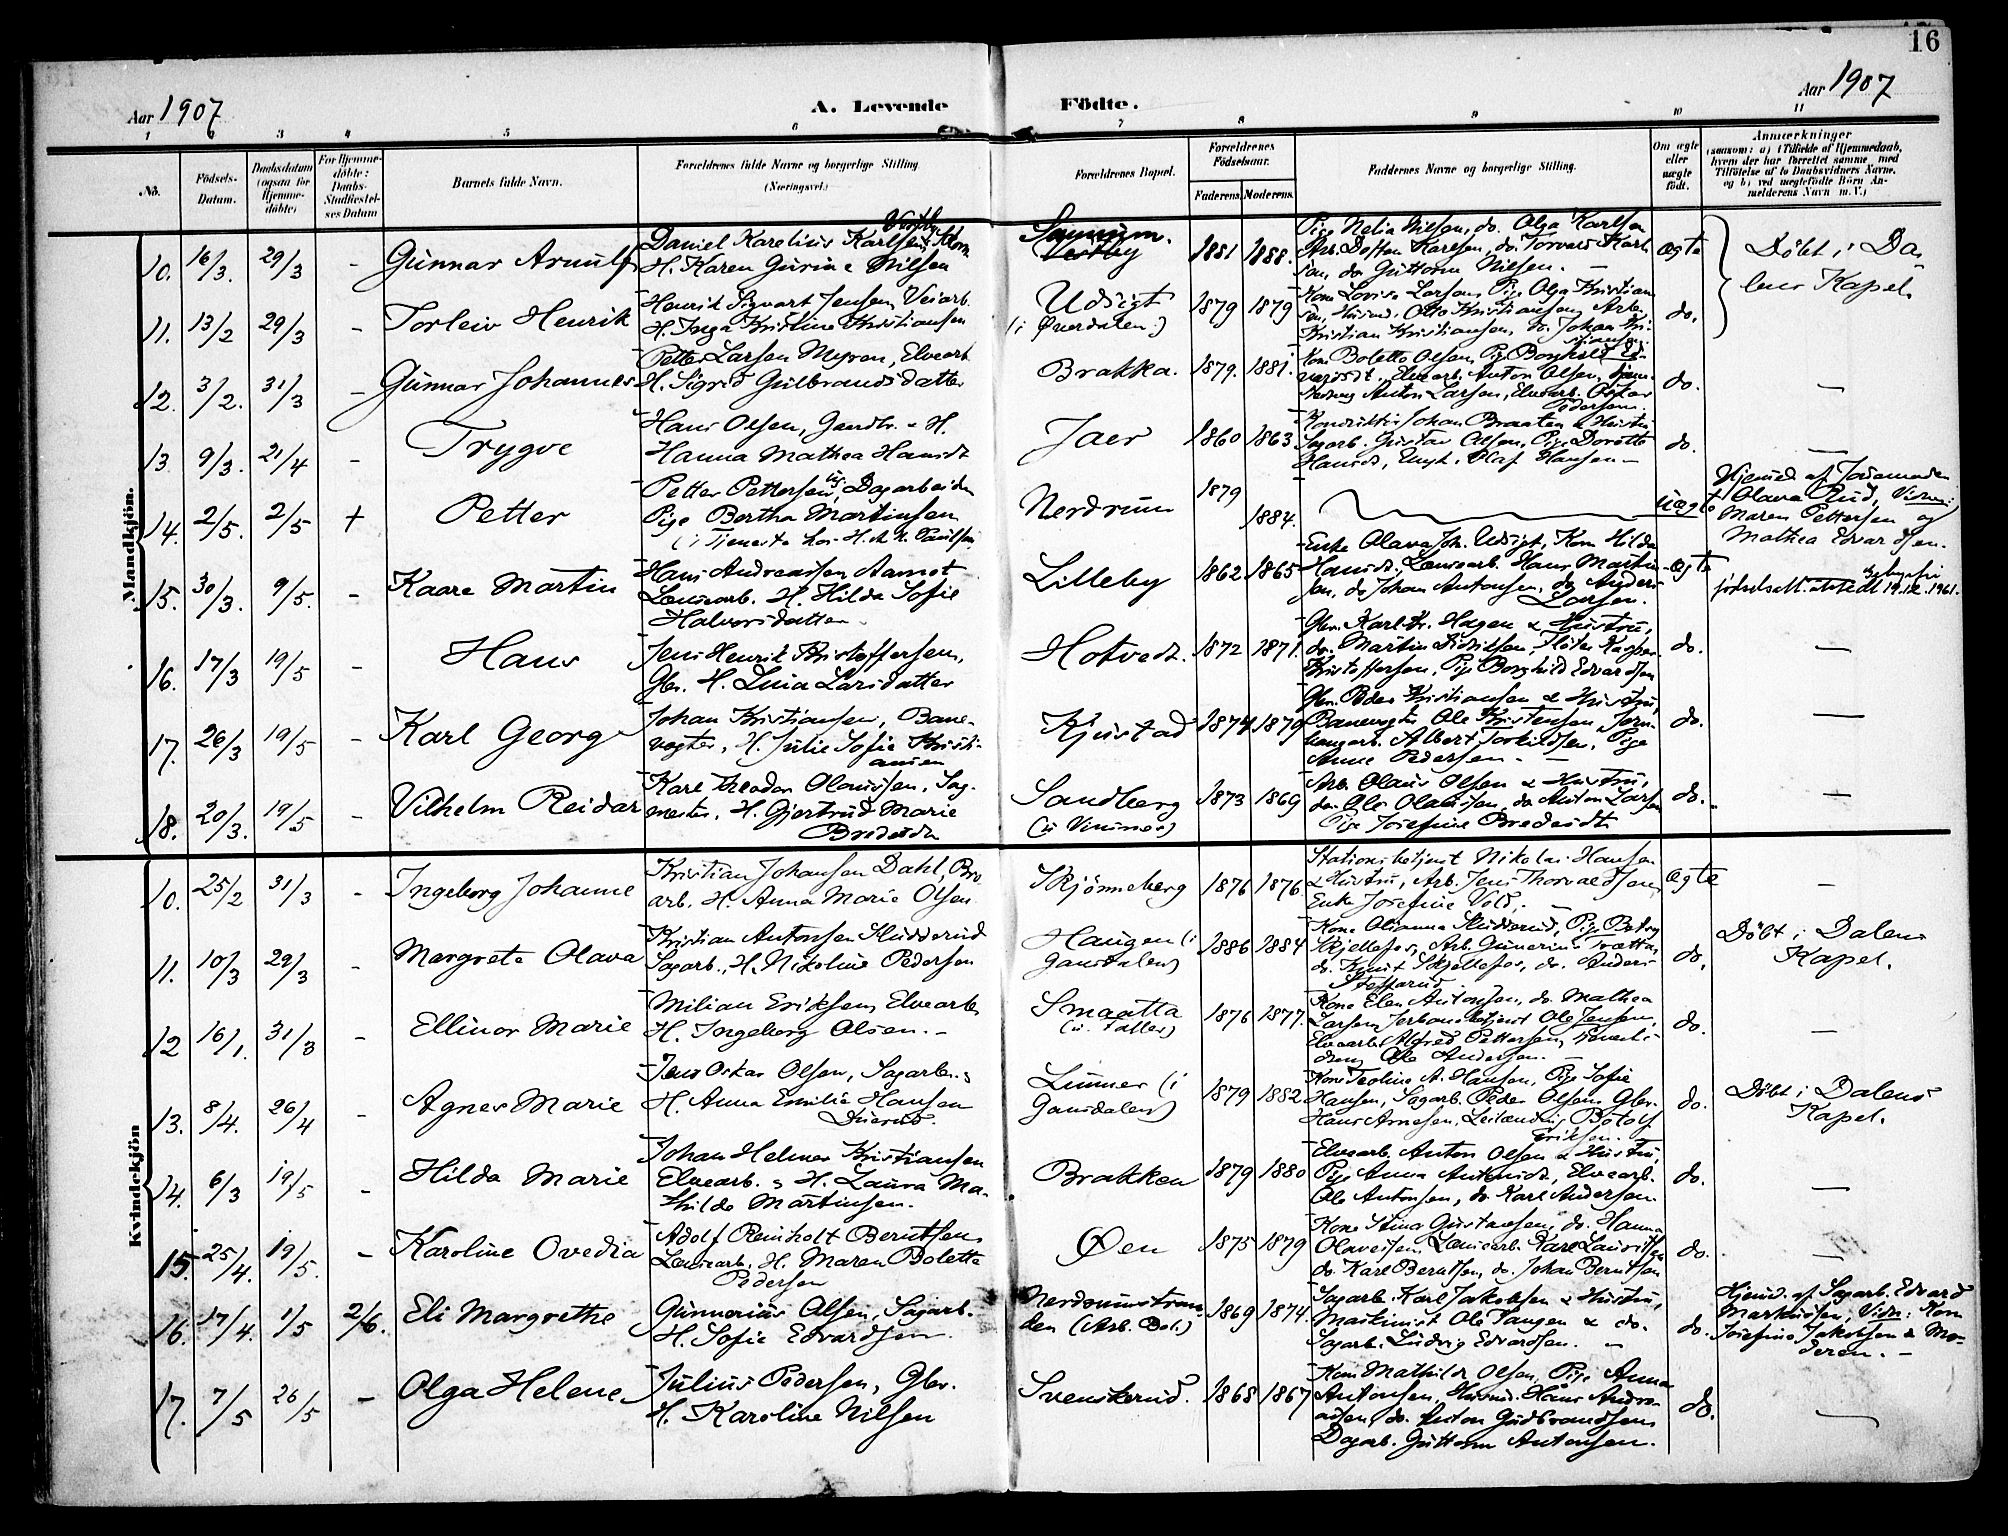 16
Aar 1907
A. Levende Födte.
Aar 1907
1 2 3 4 5 6 7 8 9 10 11
No.
Födsels-Datum.
Daabsdatum (ogsaa for Hjemme-döbte)
For Hjemme-döbte: Daabs-Stadfæstel-ses Datum
Barnets fulde Navn.
Forældrenes fulde Navne og borgerlige Stilling (Næringsvei.)
Forældrenes Bopæl.
Forældrenes Födselsaar.
Faderens. Moderens.
Faddernes Navne og borgerlige Stilling.
Om ægte eller uægte födt.
Anmærkninger
(saasom: a) i Tilfælde af Hjemmedaab,
hvem der har forrettet samme, med
Tilföielse af to Daabsvidners Navne,
og b) ved uægtefödte Börn An-
melderens Navn m. V.)
Mandkjön.
10. 16/3. 29/3 - Gunnar Arnulf
Daniel Karelius Karlsen
H. Karen Gurine Nilsen
Vestby 1881 1888.
Pige Nelia Nielsen, do. Olga Karlsen
Arb. Karlsen, do. Torvald Karl
sen, do. Guttorm Nielsen. -
ægte
Döbt i Da
lens Kapel.
11. 13/2 29/3 - Torleiv Henrik
Henrik Sigvart Jensen, Veiarb.
H. Inga Kristine Kristiansen
Udsigt (i Överdalen) 1879 1879
Kone Lovise Larsen, Pige Olga Kristian
sen, Otto Kristiansen, Arb.
Kristian Kristiansen, do. Johan Kri-
stiansen.
do.
12. 3/2. 31/3 - Gunnar Johannes
Petter Larsen Myren, Elvearb.
H. Sigrid Gulbrandsdatter
Brakka. 1879. 1881.
Kone Bolette Olsen, Pige Borghild
Elvearb. Anton Olsen,
Anton Larsen, Elvearb. Oskar
Pedersen.
do. -
13. 9/3. 21/4 - Trygve
Hans Olsen, Gaardbr. - H.
Hanna Mathea Hansdt
Jaer 1860 1863
Johan Braaten & Hustru
Sagarb. Gustav Olsen, Pige Dorothe
Hansdt, Ungk. Olaf Hansen -
do. -
14. 2/5. 2/5 + Petter
Petter Pettersen, Dagarbeider
Pige Bertha Martinsen
(i Tjeneste hos H. A. N. Paulsen)
Nerdrum 1879 1884.
uægte
Hjemmed. af Jordemoder
Olava Rud, Vidner:
Maren Pettersen og
Mathea Edvardsen.
15. 30/3. 9/5. - Kaare Martin
Hans Andreassen Aamot
Lensearb. H. Hilda Sofie
Halvorsdatter
Lilleby 1862 1865
Enke Olava Joh. Udsigt, Kone Hilda
Hansdt. Lensearb. Hans Martin-
sen, do Johan Antonsen, do. Anders
Larsen.
ægte
fødselsatt. utstedt 19.12.1961.
16. 17/3 19/5 - Hans
Jens Henrik Kristoffersen,
Gbr. H. Lina Larsdatter
Hotvedt. 1872 1871.
Gbr. Karl Kr. Hagen & Hustru,
do. Martin Didriksen, Fløter Kasper
Kristoffersen, Pige Borghild Edvardsen
do. -
17. 26/3 19/5 - Karl Georg
Johan Kristiansen, Bane-
vogter, H. Julie Sofie Kristi-
ansen
Kjustad 1874 1879
Gbr. Peder Kristiansen & Hustru,
Banevogter Ole Kristensen, Jern-
banearb. Albert Torkildsen, Pige
Anne Pedersen. -
do. -
18. 20/3. 19/5 - Vilhelm Reidar
Karl Theodor Olaussen, Sag-
mester, H. Gjertrud Marie
Bredesdtr
Sandberg 1873 1869
Arb. Olaus Olsen & Hustru,
do. Ole Olaussen, do. Anton Larsen
Pige Josefine Bredesdtr
do. -
Kvindekjön
10. 25/2 31/3 - Ingeborg Johanne
Kristian Johansen Dahl, Bro
arb. H. Anna Marie Olsen
Skjönneberg 1876 1876.
Stationsbetjent Nikolai Hansen
& Hustru, Arb. Jens Thorvaldsen,
Enke Josefine Vold, -
ægte -
11. 10/3 29/3 - Margrete Olava
Kristian Antonsen Sludderud
Sagarb., H. Nikoline Pedersen
Haugen (i Gansdalen) 1886 1884
Kone Olianna Sludderud, Pige Betsy
Skjellefos, Arb. Gunerius Tvætta,
do. Knut Skjellefos, do. Anders
do.
Döbt i Dalens
Kapel.
12 16/1. 31/3 - Ellinor Marie
Milian Eriksen, Elvearb.
H. Ingeborg Olsen. -
Smaatta 1876 1877.
Kone Elen Antonsen, do. Mathea
Larsen, Jernbanebetjent Ole Jensen,
Elvearb. Alfred Pettersen,
Ole Andersen. -
do. -
13. 8/4. 26/4 - Agnes Marie
Jens Oskar Olsen, Sagarb. &
H. Anna Emilie Hansen
Duerud.
Limmer (i Gansdalen) 1879 1882
Kone Teoline A. Hansen, Pige Sofie
Hansen, Sagarb. Peder Olsen, Gbr.
Hans Arnesen, Leilænding Botolf
Eriksen. -
do.
Döbt i Dalens
Kapel.
14. 6/3 19/5 - Hilda Marie
Johan Helmer Kristiansen
Elvearb. & H. Laura Ma-
thilde Martinsen.
Brakken 1879 1880
Elvearb. Anton Olsen & Hustru,
Pige Anna Antonsdt, Elvearb.
Ole Antonsen, do. Karl Andersen.
do. -
15. 25/4. 19/5. - Karoline Ovedia
Adolf Reinholt Berntsen,
Lensearb. H. Maren Bolette
Pedersen
Øen 1875 1879
Kone Stina Gustavsen, do. Hanna
Olavesen, Lensearb. Karl Lauritsen
do. Karl Berntsen, do. Johan Berntsen
do. -
16. 17/4. 1/5 2/6. Eli Margrethe
Gunnerius Olsen, Sagarb.
H. Sofie Edvardsen.
Nerdrumstran-
den (Arb. Bol.) 1869 1874.
Sagarb. Karl Jakobsen & Hustru,
Maskinist Ole Tangen & do.
Sagarb. Ludvig Edvardsen. -
do.
Hjemd. af Sagarb. Edvard
Markusen, Vidn: Kone
Josefine Jakobsen & Mo-
deren. -
17. 7/5 26/5 - Olga Helene
Julius Pedersen, Gbr.
H. Karoline Nilsen
Svenskerud. 1868 1867
Kone Mathilde Olsen, Pige Anna
Antonsen, Husmd. Hans Andre-
assen, do. Anton Gudbrandsen,
Dagarb. Guttorm Antonsen.
do. -